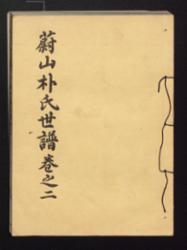 蔚山朴氏世譜卷之二